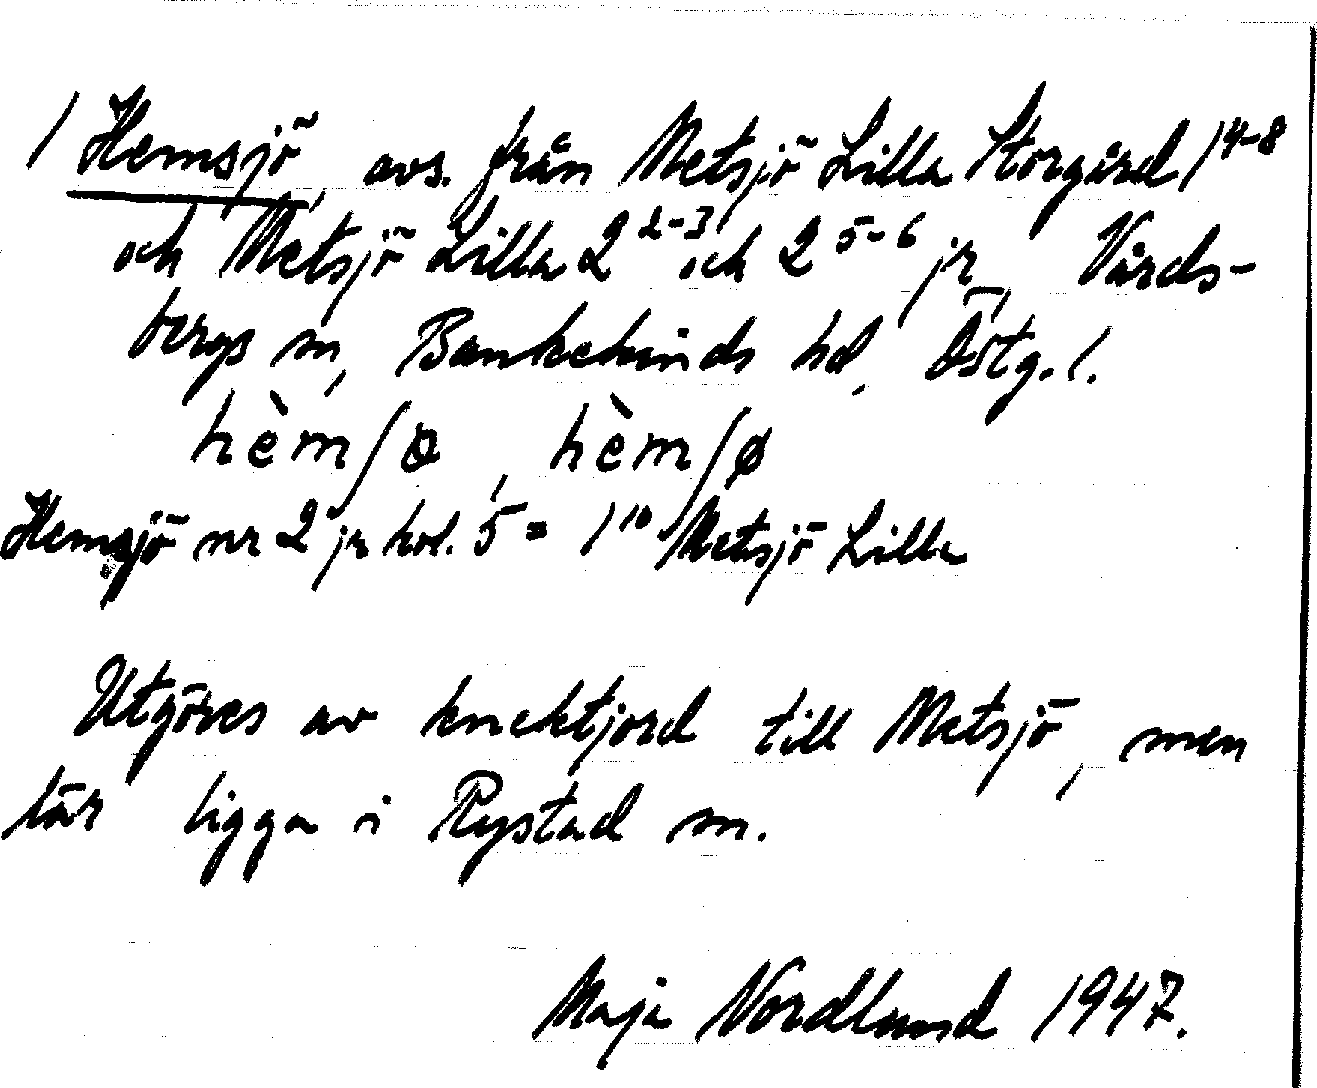 1 Hemsjö, avs. från Metsjö Lilla Storgård 1 4-8
och Metsjö Lilla 2 2-3 och 2 5-6 jr, Vårds-
bergs sn, Bankekinds hd, Östg. l.
hèmʃ
Hemsjö nr 2 jr kol. 5 = 1 10 Metsjö Lilla
Utgöres av knektjord till Metsjö, men
lär ligga i Rystad sn.
Maja Nordlund 1947.